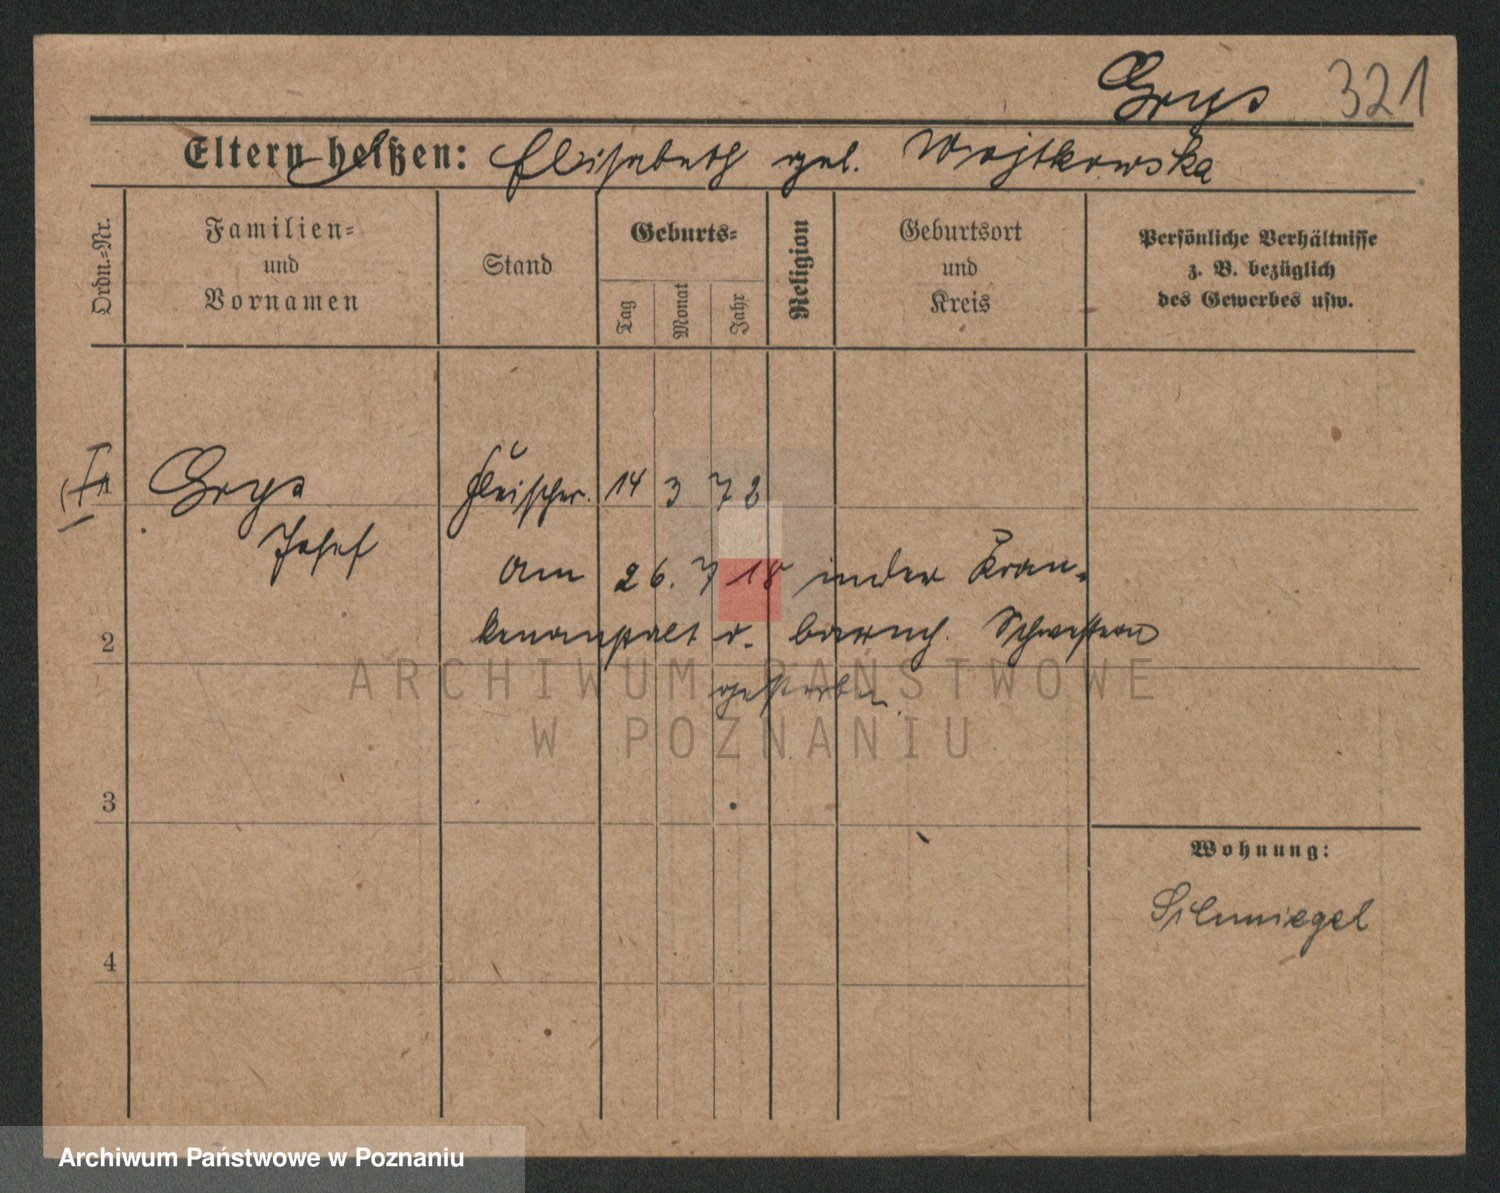 Grys 321
Eltern heißen: Elisabeth geb. Wojtkowska
Ordn.-Nr.
Familien-
und
Vornamen
Stand
Geburts-
Tag
Monat
Jahr
Religion
Geburtsort
und
Kreis
Persönliche Verhältnisse
z. B. bezüglich
des Gewerbes usw.
1 Grys Fleischer. 14 3 72
Josef
am 26. 7 18 in der Kran-
2 kenanstalt d. barmh. Schwestern
gestorben.
ARCHIWUM PAŃSTWOWE
W POZNANIU
3
Wohnung:
Schmiegel
4
Archiwum Państwowe w Poznaniu